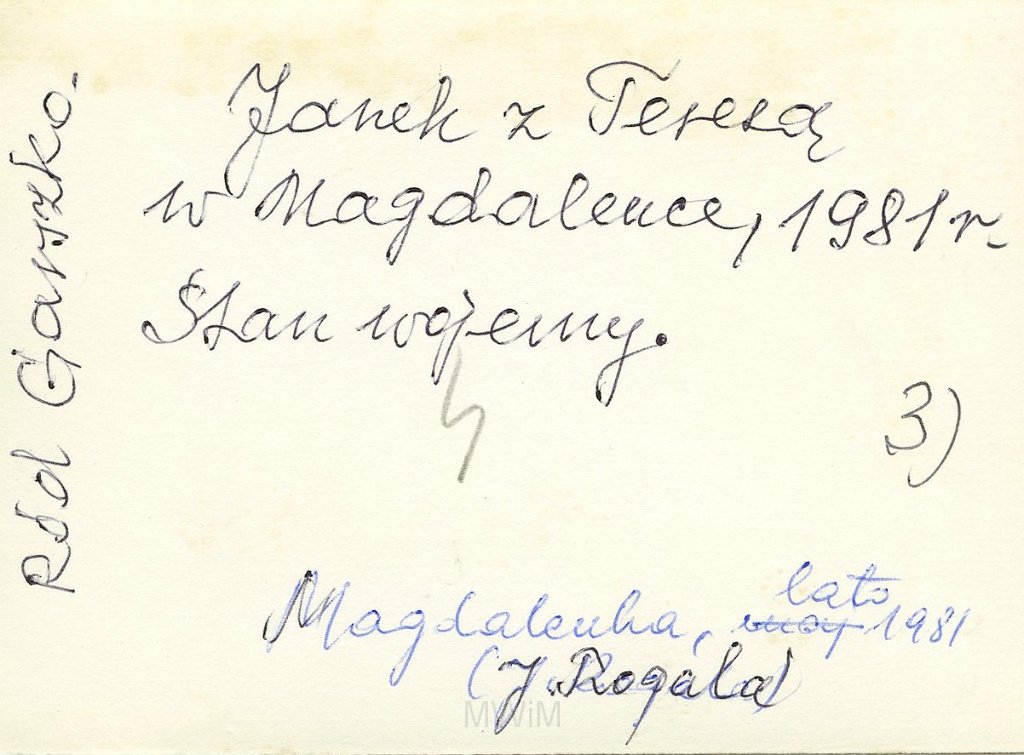 Janek z Teresą
w Magdalence, 1981 r.
Stan wojenny.
3)
Ród Garszko.
lato
Magdalenka, maj 1981
(J. Rogala)
MWiM